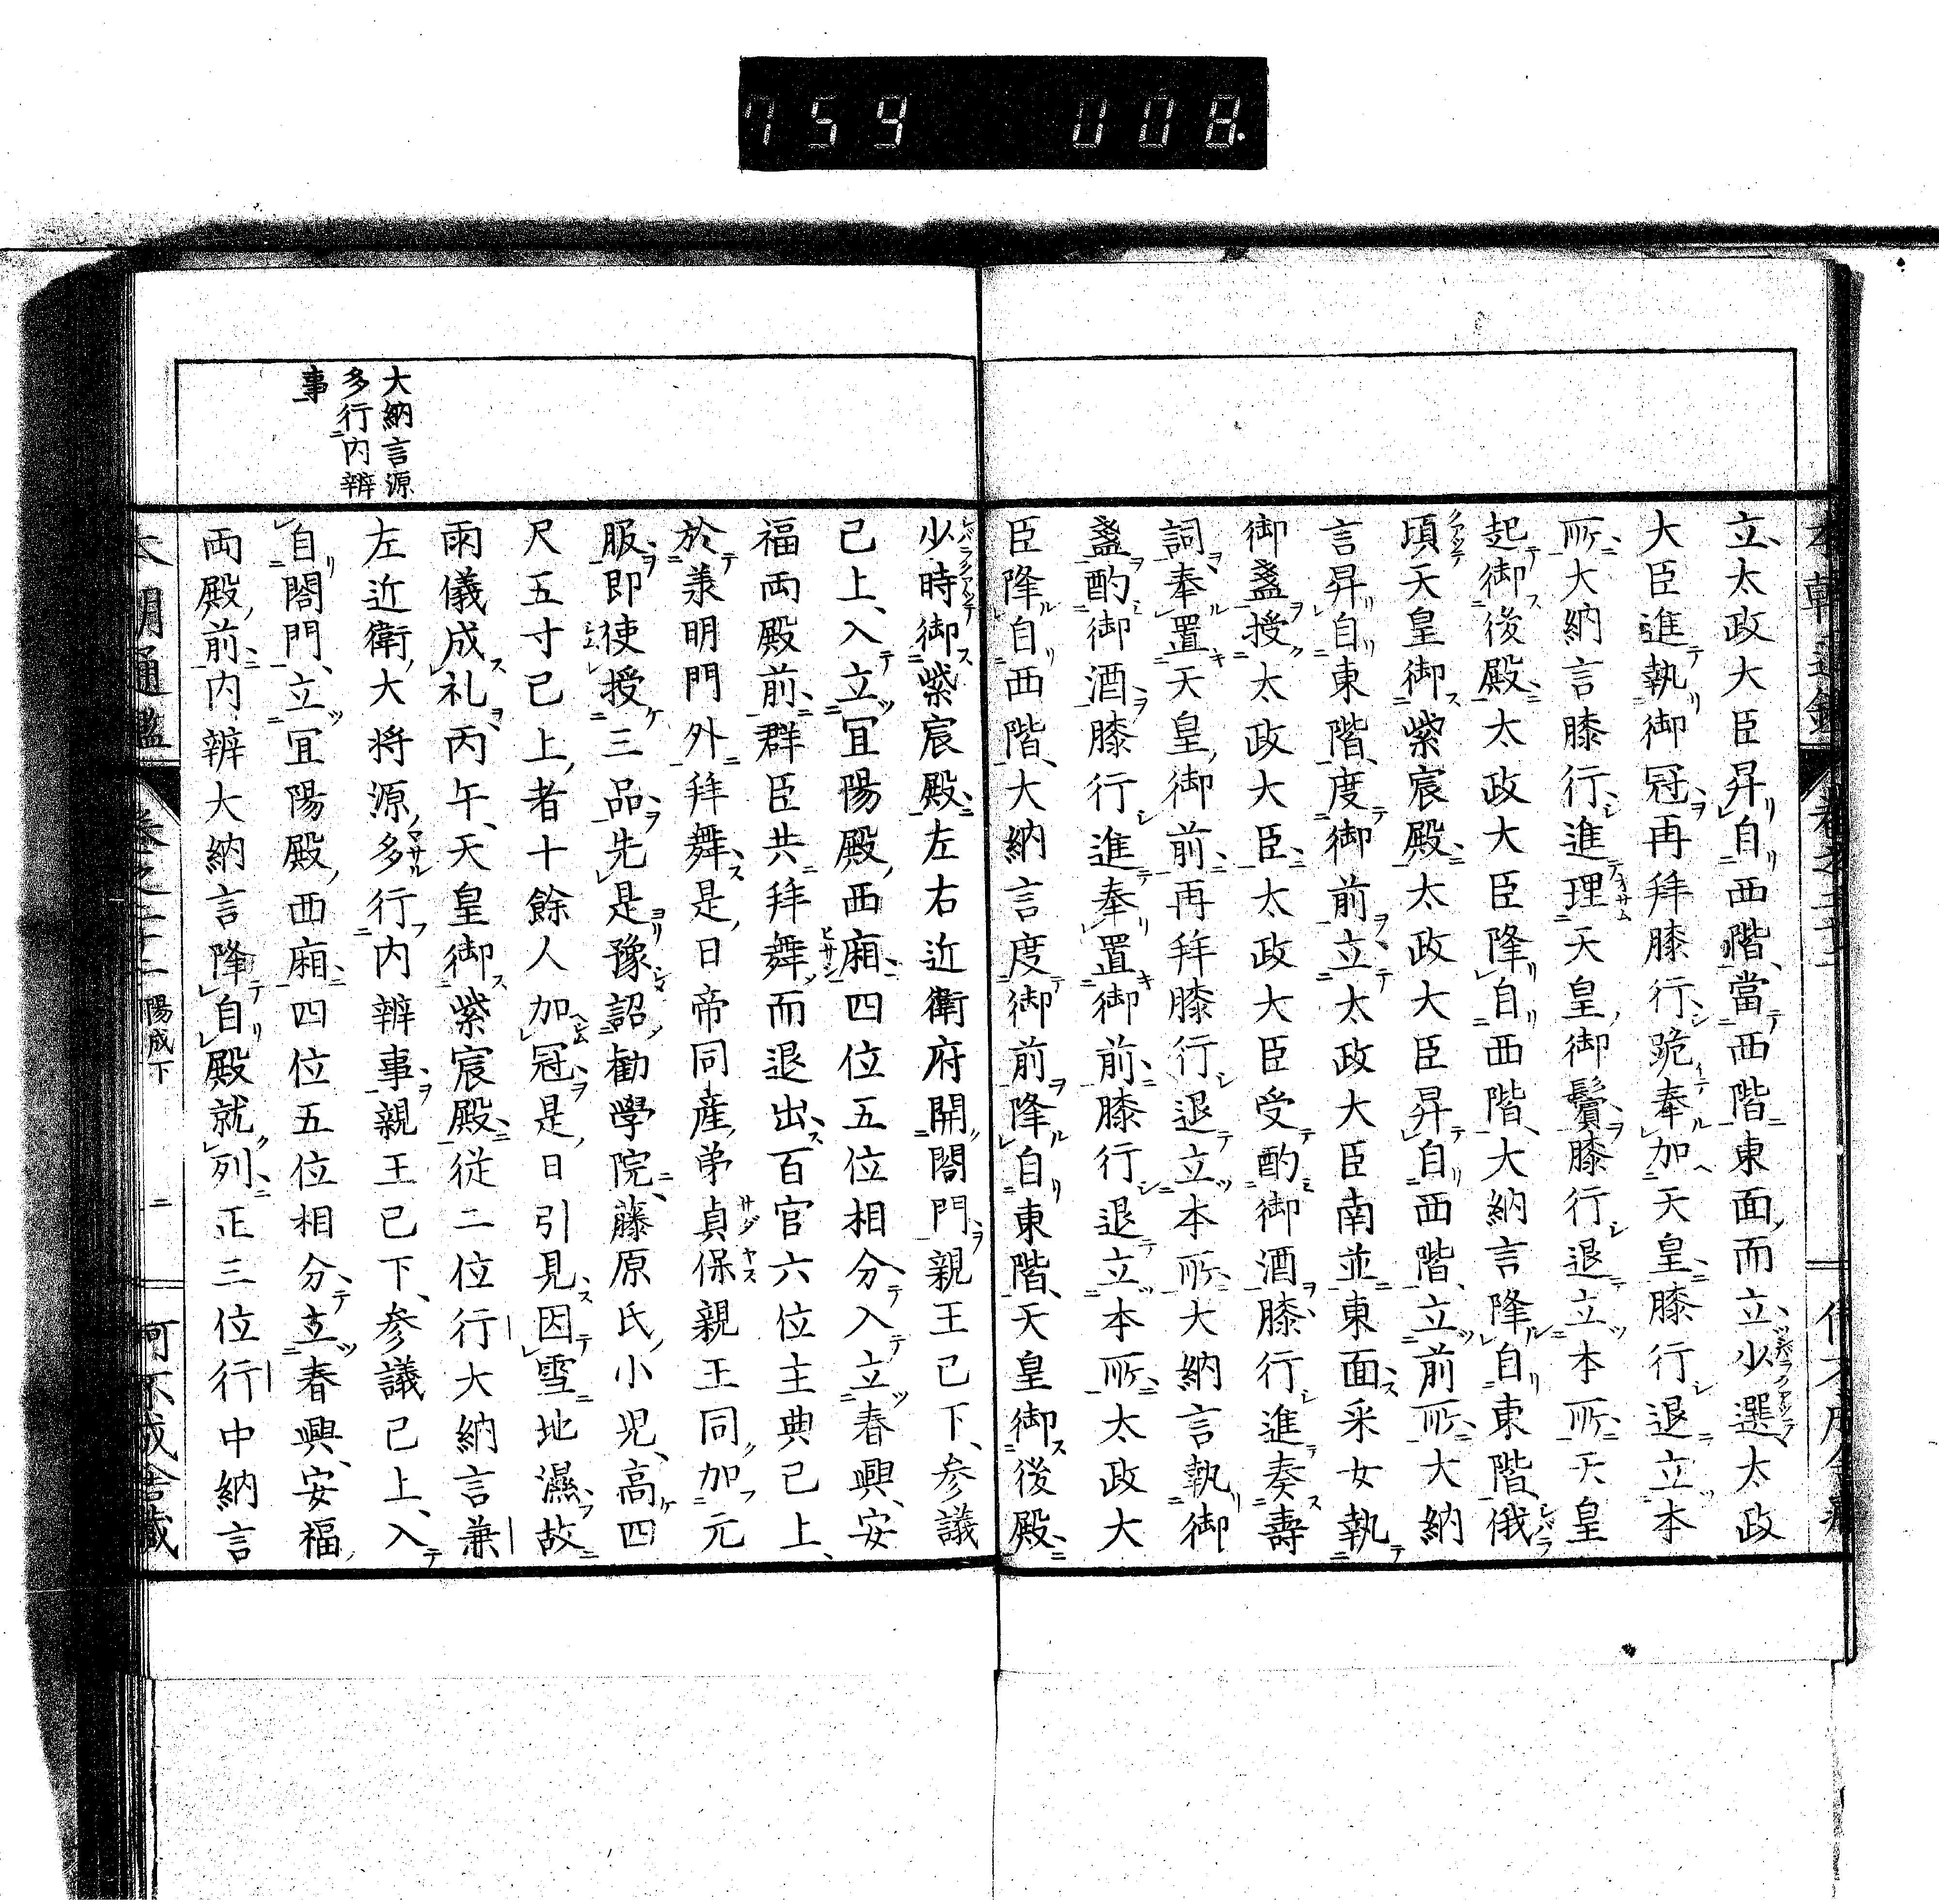 759 008.
立太政大臣昇自西階當西階東面而立少選太政
大臣進執御冠再拜膝行跪奉加天皇膝行退立本
所大納言膝行進理天皇御鬢膝行退立本所天皇
起御後殿太政大臣降自西階大納言降自東階俄
頃天皇御紫宸殿太政大臣昇自西階立前所大納
言昇自東階度御前立太政大臣南並東面采女執
御盞授太政大臣太政大臣受酌御酒膝行進奏壽
詞奉置天皇御前再拜膝行退立本所大納言執御
盞酌御酒膝行進奉置御前膝行退立本所太政大
臣降自西階大納言度御前降自東階天皇御後殿
少時御紫宸殿左右近衛府開閤門親王已下參議
已上入立宜陽殿西廂四位五位相分入立春興安
福両殿前群臣共拜舞而退出百官六位主典已上
於羕明門外拜舞是日帝同産弟貞保親王同加元
服即使授三品先是豫詔勸學院藤原氏小児高四
尺五寸已上者十餘人加冠是日引見因雪地濕故
雨儀成礼丙午天皇御紫宸殿従二位行大納言兼
左近衛大将源多行内辨事親王已下参議已上入
自閤門立宜陽殿西廂四位五位相分立春興安福
両殿前内辨大納言降自殿就列正三位行中納言
大納言源
多行内辨
事
本朝通鑑 卷之二十二 陽成下 二